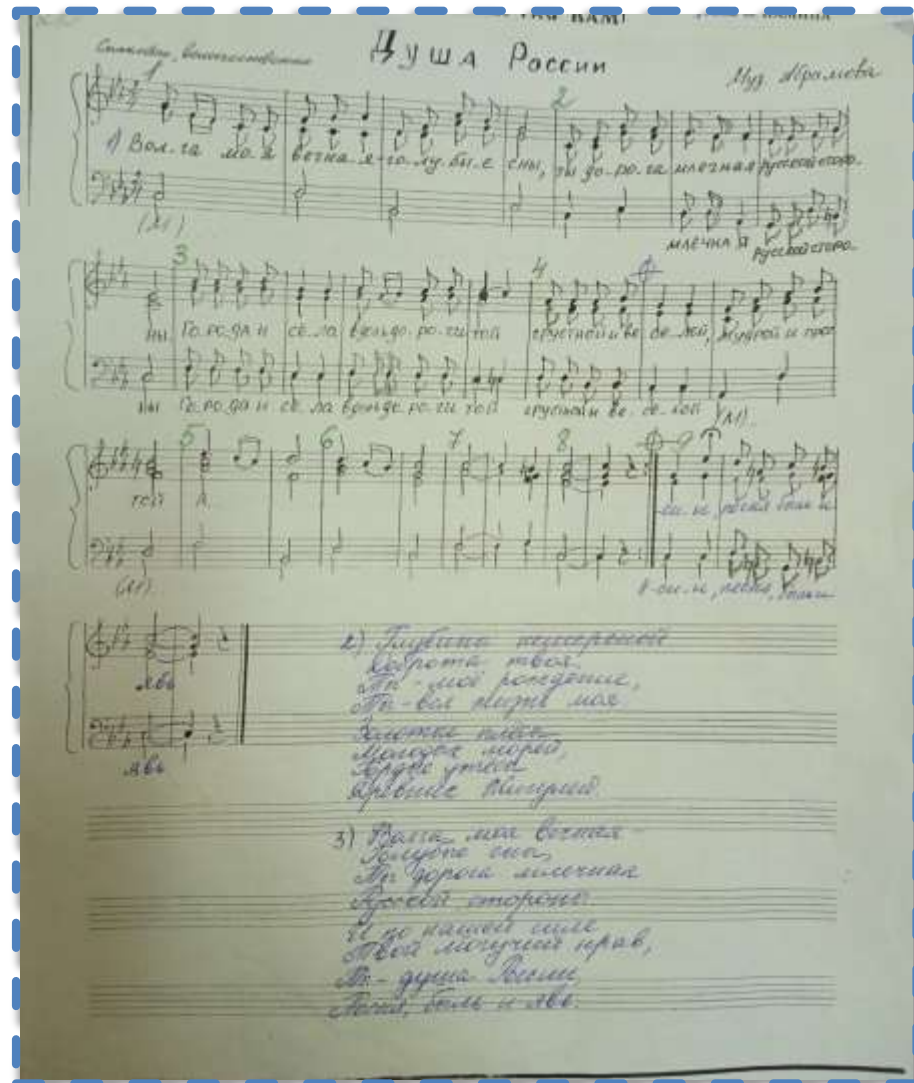 Душа России
Муз. Абрамова
1
2
1) Вол-га мо-я вечна-я-го-лу-бы-е сны, ты до-ро-га млечная русской сторо-
(М)
млечна я русской сторо-
3
4
ны Го-ро-да и се-ла вдоль до-ро-ги той грустной и ве-се-лой, мудрой и прос
ны Го-ро-да и се-ла вдоль до-ро-ги той грустной и ве-се-лой (М).
5 6 7 8 9
той А.
си-и, песня, быль и
(М).
си-и, песня, быль и
явь
явь
2) Глубина
Доброта твоя.
Ты - моё рождение,
Ты - вся жизнь моя.
Золотые
Молодых морей,
Гордые утёсы
Древних Жигулей.
3) Волга моя вечная -
Голубые сны,
Ты дорога млечная
Русской стороны.
И по нашей силе
Твой могучий нрав,
Ты - душа России,
Песня, быль и явь.